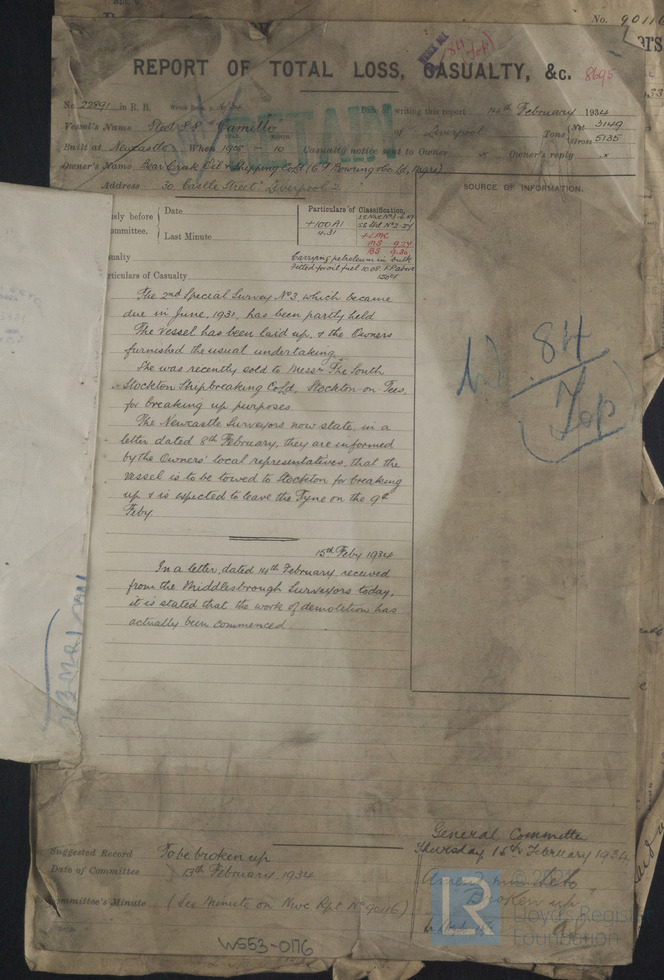 No. 90116
REPORT OF TOTAL LOSS, CASUALTY, &c. 8695
No 22891 in R. B. Date of writing this report 14th February 1934
Vessel's Name Stel S.S. "Camillo" of Liverpool Tons { Net 3149 Gross 5135
Built at Newcastle When 1908 - 10 Casualty notice sent to Owner x Owner's reply x
Owner's Name Bear Creek Oil & Shipping Co Ld (C. T. Bowring & Co Ld, Mgrs)
Address 30 Castle Street, Liverpool 2.
SOURCE OF INFORMATION.
sly before Date Particulars of Classification.
mmittee. Last Minute +100A1
4.31
+LMC
MS 9.27
BS
ualty Carrying petroleum in bulk
rticulars of Casualty Fitted for oil fuel 10.08 F.P. above
150°F
The 2nd Special Survey No 3, which became
due in June, 1931, has been partly held
The vessel has been laid up, & the Owners
furnished the usual undertaking.
She was recently sold to Messrs The South
Stockton Shipbreaking Co Ld, Stockton-on-Tees,
for breaking up purposes
The Newcastle Surveyors now state, in a
letter dated 8th February, they are informed
by the Owners' local representatives, that the
vessel is to be towed to Stockton for breaking
up & is expected to leave the Tyne on the 9th
Feby
84
Top
15th Feby 1934
In a letter, dated 14th February, received
from the Middlesbrough Surveyors today,
it is stated that the work of demolition has
actually been commenced
General Committee
Thursday 15th February 1934
Suggested Record To be broken up
Date of Committee 15th February, 1934
mmittee's Minute (See Minute on Nwc Rpt No 90116)
Broken up
W553-0176
LR
©
Lloyd's Register
Foundation